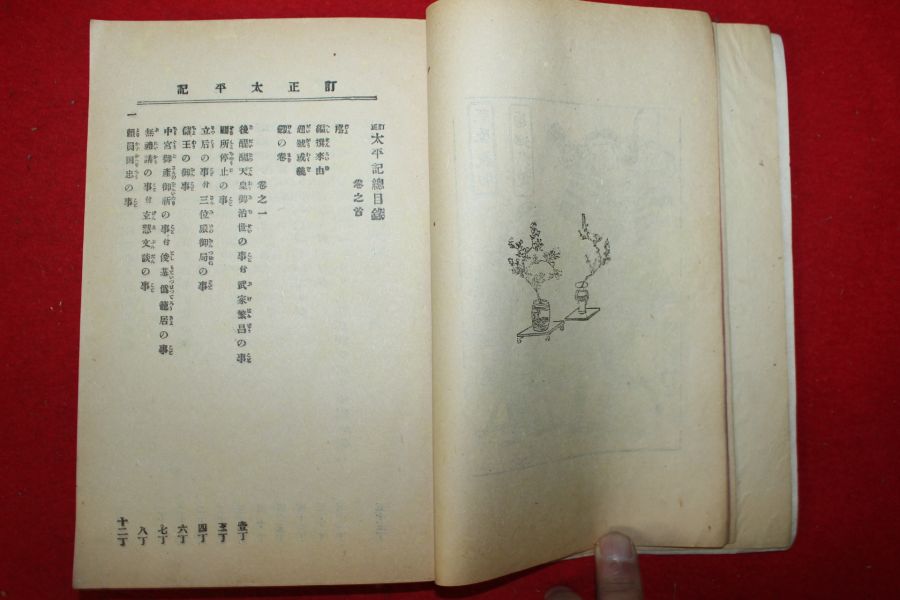 訂正太平記
訂正太平記總目錄
卷之首
序
編撰來由
題號成義
劔の卷
卷之一
後醍醐天皇御治世の事付武家繁昌の事
關所停止の事
立后の事付三位殿御局の事
儲王の御事
中宮御產御祈の事付俊基僞籠居の事
無禮講の事付玄慧文談の事
賴員回忠の事
壹丁
三丁
四丁
六丁
七丁
八丁
十二丁
一